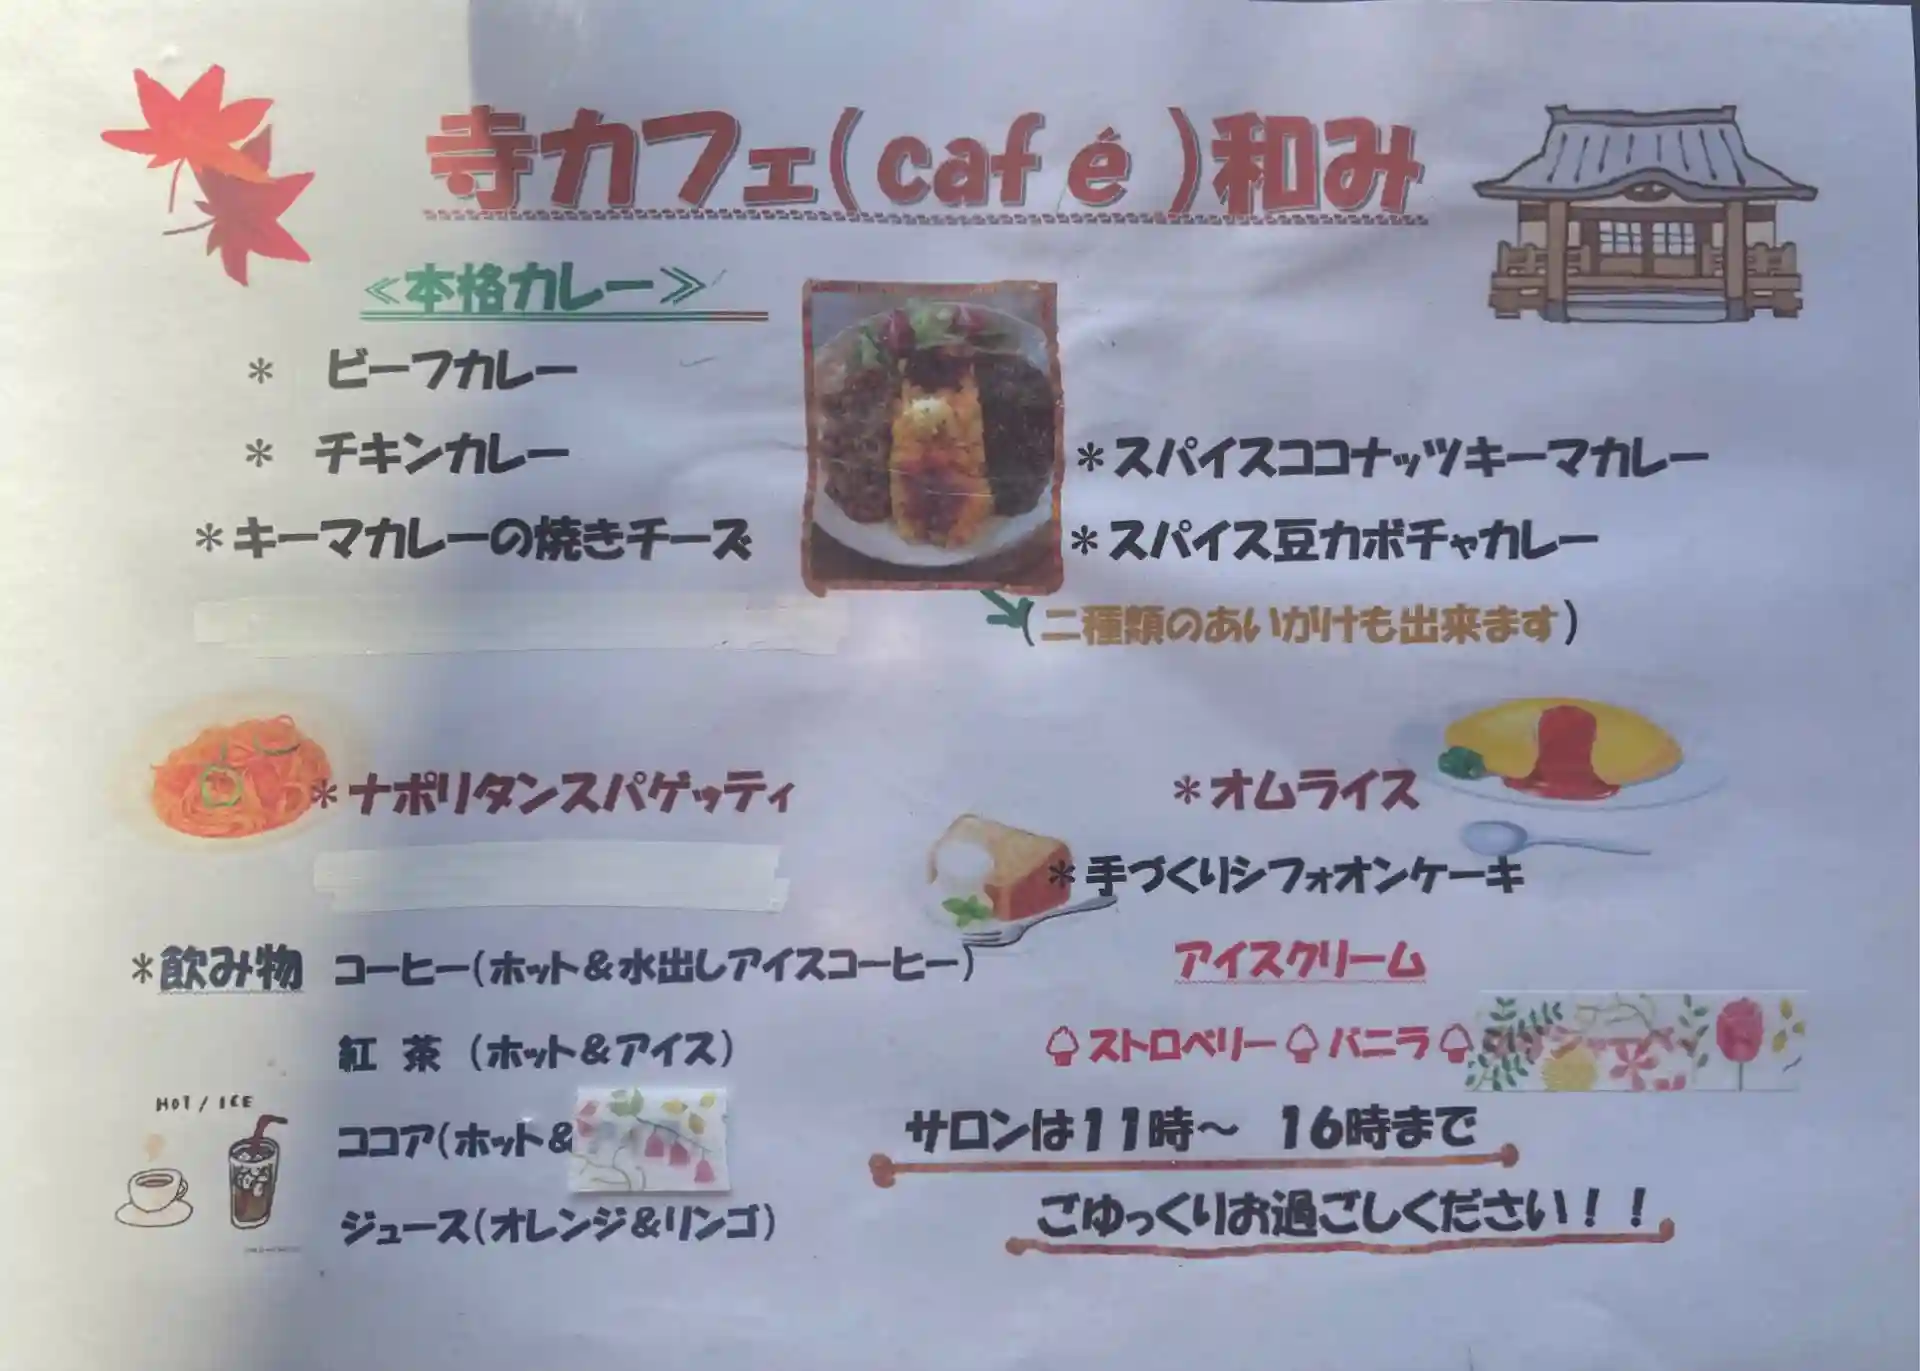 寺カフェ(café)和み
≪本格カレー≫
＊ ビーフカレー
＊ チキンカレー
＊キーマカレーの焼きチーズ
＊スパイスココナッツキーマカレー
＊スパイス豆カボチャカレー
(二種類のあいがけも出来ます)
＊ナポリタンスパゲッティ
＊オムライス
＊手づくりシフォオンケーキ
＊飲み物 コーヒー(ホット＆水出しアイスコーヒー)
紅 茶 (ホット＆アイス)
ココア(ホット＆
ジュース(オレンジ＆リンゴ)
HOT / ICE
アイスクリーム
ストロベリー バニラ
サロンは11時～ 16時まで
ごゆっくりお過ごしください！！